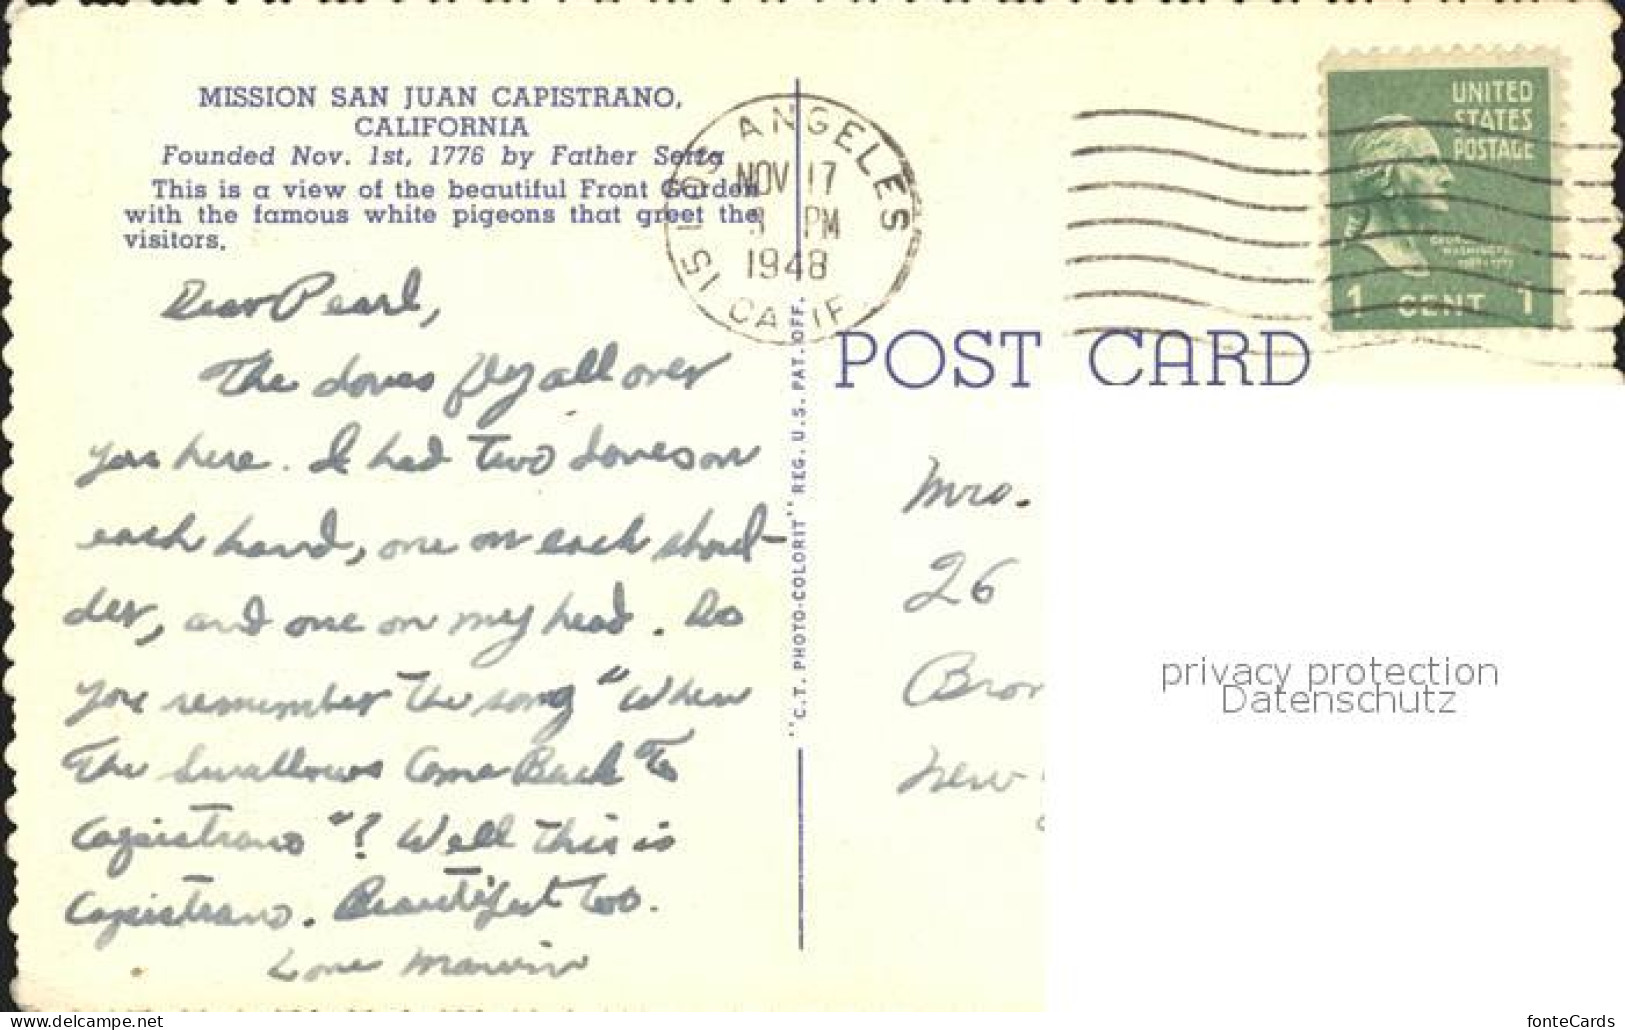 MISSION SAN JUAN CAPISTRANO,
CALIFORNIA
Founded Nov. 1st, 1776 by Father Serra
This is a view of the beautiful Front Garden
with the famous white pigeons that greet the
visitors.
Dear Pearl,
The doves fly all over
you here. I had two doves on
each hand, one on each shoul-
der, and one on my head. Do
you remember the song "When
The Swallows Come Back To
Capistrano"? Well this is
Capistrano. Beautiful too.
Love Marvin
"C.T. PHOTO-COLORIT" REG. U.S. PAT. OFF.
LOS ANGELES
NOV 17
PM
1948
15 CALIF.
UNITED
STATES
POSTAGE
GEORGE
WASHINGTON
1 CENT 1
POST CARD
Mrs.
26
Bron
New
privacy protection
Datenschutz
www.delcampe.net
fonteCards